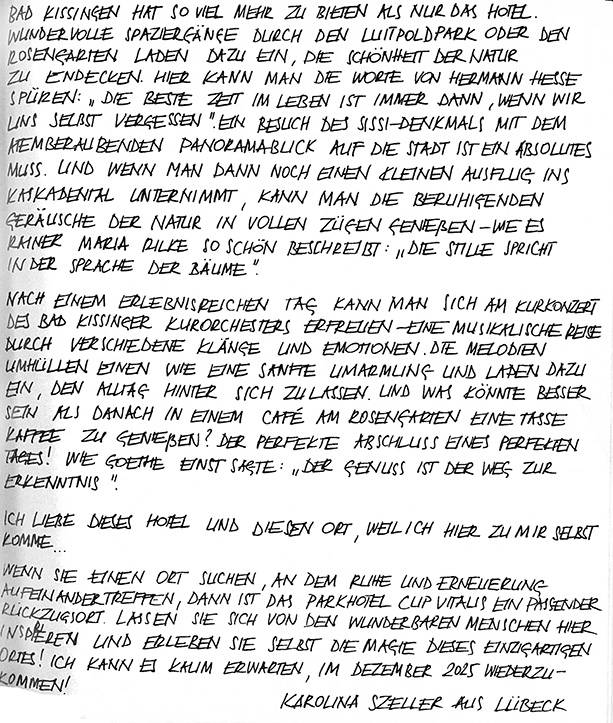 BAD KISSINGEN HAT SO VIEL MEHR ZU BIETEN ALS NUR DAS HOTEL.
WUNDERVOLLE SPAZIERGÄNGE DURCH DEN LUITPOLDPARK ODER DEN
ROSENGARTEN LADEN DAZU EIN, DIE SCHÖNHEIT DER NATUR
ZU ENDECKEN. HIER KANN MAN DIE WORTE VON HERMANN HESSE
SPÜREN: „DIE BESTE ZEIT IM LEBEN IST IMMER DANN, WENN WIR
UNS SELBST VERGESSEN". EIN BESUCH DES SISSI-DENKMALS MIT DEM
ATEMBERAUBENDEN PANORAMABLICK AUF DIE STADT IST EIN ABSOLUTES
MUSS. UND WENN MAN DANN NOCH EINEN KLEINEN AUSFLUG INS
KASKADENTAL UNTERNIMMT, KANN MAN DIE BERUHIGENDEN
GERÄUSCHE DER NATUR IN VOLLEN ZÜGEN GENIEßEN – WIE ES
RAINER MARIA RILKE SO SCHÖN BESCHREIBT: „DIE STILLE SPRICHT
IN DER SPRACHE DER BÄUME".
NACH EINEM ERLEBNISREICHEN TAG KANN MAN SICH AM KURKONZERT
DES BAD KISSINGER KURORCHESTERS ERFREUEN – EINE MUSIKALISCHE REISE
DURCH VERSCHIEDENE KLÄNGE UND EMOTIONEN. DIE MELODIEN
UMHÜLLEN EINEN WIE EINE SANFTE UMARMUNG UND LADEN DAZU
EIN, DEN ALLTAG HINTER SICH ZU LASSEN. UND WAS KÖNNTE BESSER
SEIN ALS DANACH IN EINEM CAFÉ AM ROSENGARTEN EINE TASSE
KAFFEE ZU GENIEßEN? DER PERFEKTE ABSCHLUSS EINES PERFEKTEN
TAGES! WIE GOETHE EINST SAGTE: „DER GENUSS IST DER WEG ZUR
ERKENNTNIS".
ICH LIEBE DIESES HOTEL UND DIESEN ORT, WEIL ICH HIER ZU MIR SELBST
KOMME...
WENN SIE EINEN ORT SUCHEN, AN DEM RUHE UND ERNEUERUNG
AUFEINANDERTREFFEN, DANN IST DAS PARKHOTEL CUP VITALIS EIN PASSENDER
RÜCKZUGSORT. LASSEN SIE SICH VON DEN WUNDERBAREN MENSCHEN HIER
INSPIRIEREN UND ERLEBEN SIE SELBST DIE MAGIE DIESES EINZIGARTIGEN
ORTES! ICH KANN ES KAUM ERWARTEN, IM DEZEMBER 2025 WIEDERZU-
KOMMEN!
KAROLINA SZELLER AUS LÜBECK